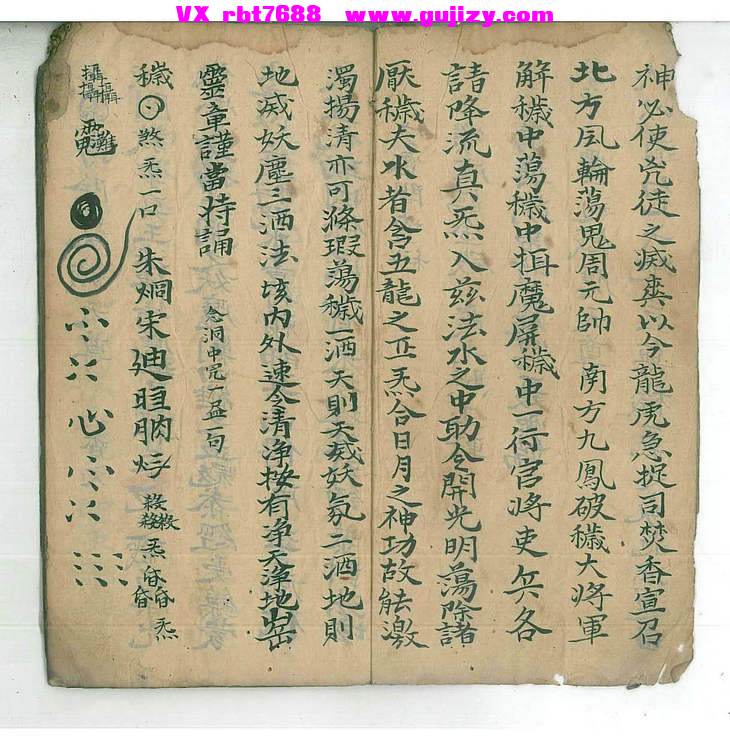 VX rbt7688 www.gujizy.com
神必使兇徒之滅粪以今龍虎急捉司焚香宣召
北方风輪蕩鬼周元帥 南方九鳳破穢大將軍
解穢中蕩穢中揖魔屏穢中一行官将吏兵各
請降流真炁入兹法水之中助令開光明蕩除諸
厭穢夫水者含五龍之正炁合日月之神功故能激
濁揚清亦可滌瑕蕩穢一洒天則天威妖氛二洒地則
地滅妖塵三洒法垓内外速令清净按有净天净地岳
靈章謹當持誦 念洞中咒一盃一句
穢 煞炁一口 朱炯宋廸 炁 炁
攝攝攝
心